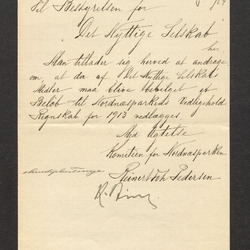 Til Bestyrelsen for
"Det Nyttige Selskab"
her
Man tillader sig herved at andrage
om, at da af Det Nyttige Selskabs
Midler maa blive bevilget et
Beløb til Nordnæsparkens Vedligehold
Regnskab for 1913 vedlægges.
Med Agtelse
Komiteen for Nordnæsparken
Pedersen